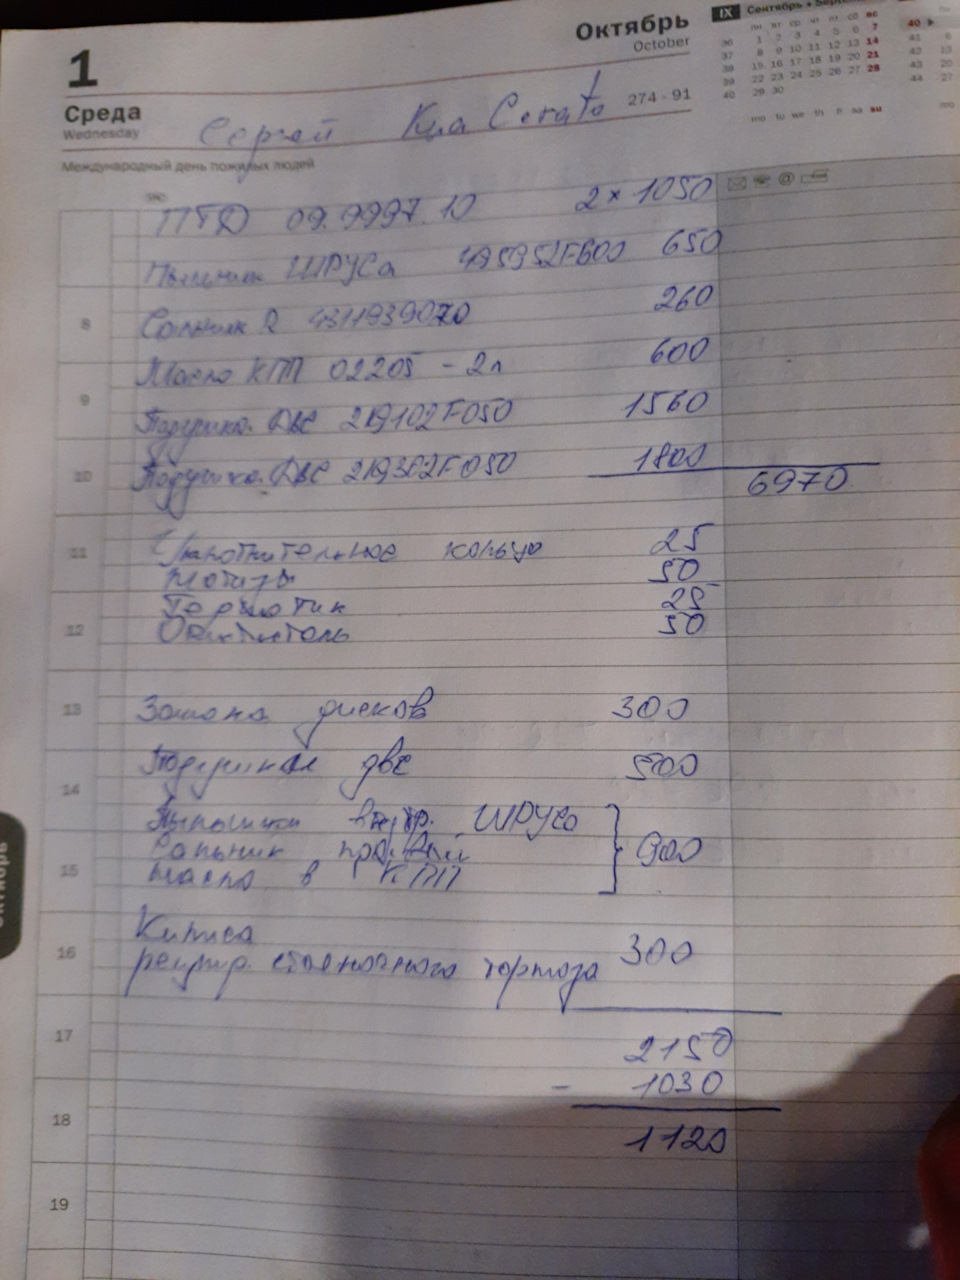 1
Октябрь
October
IX Сентябрь • Septem
пн вт ср чт пт сб вс
36 1 2 3 4 5 6 7
37 8 9 10 11 12 13 14
38 15 16 17 18 19 20 21
39 22 23 24 25 26 27 28
40 29 30
mo tu we th fr sa su
40
41 6
42 13
43 20
44 27
mo
Среда
Wednesday
274 - 91
Сергей Киа Cerato
Международный день пожилых людей
ПТД 09.9997.10 2 × 1050
Пыльник ШРУСа 495952F600 650
Сальник R 4311939070 260
8
Масло КПП 02205 - 2л 600
9
Подушка ДВС 219102F050 1560
Подушка ДВС 219302F050 1800
10
6970
11
Уплотнительное кольцо 25
Метизы 50
Герметик 25
Очиститель 50
12
13
Замена дисков 300
Подушки двс 500
14
Пыльники внутр. ШРУСа
Сальник 900
масло в КПП
15
16
регулир. стояночного тормоза 300
17
2150
- 1030
18
1120
19
Октябрь